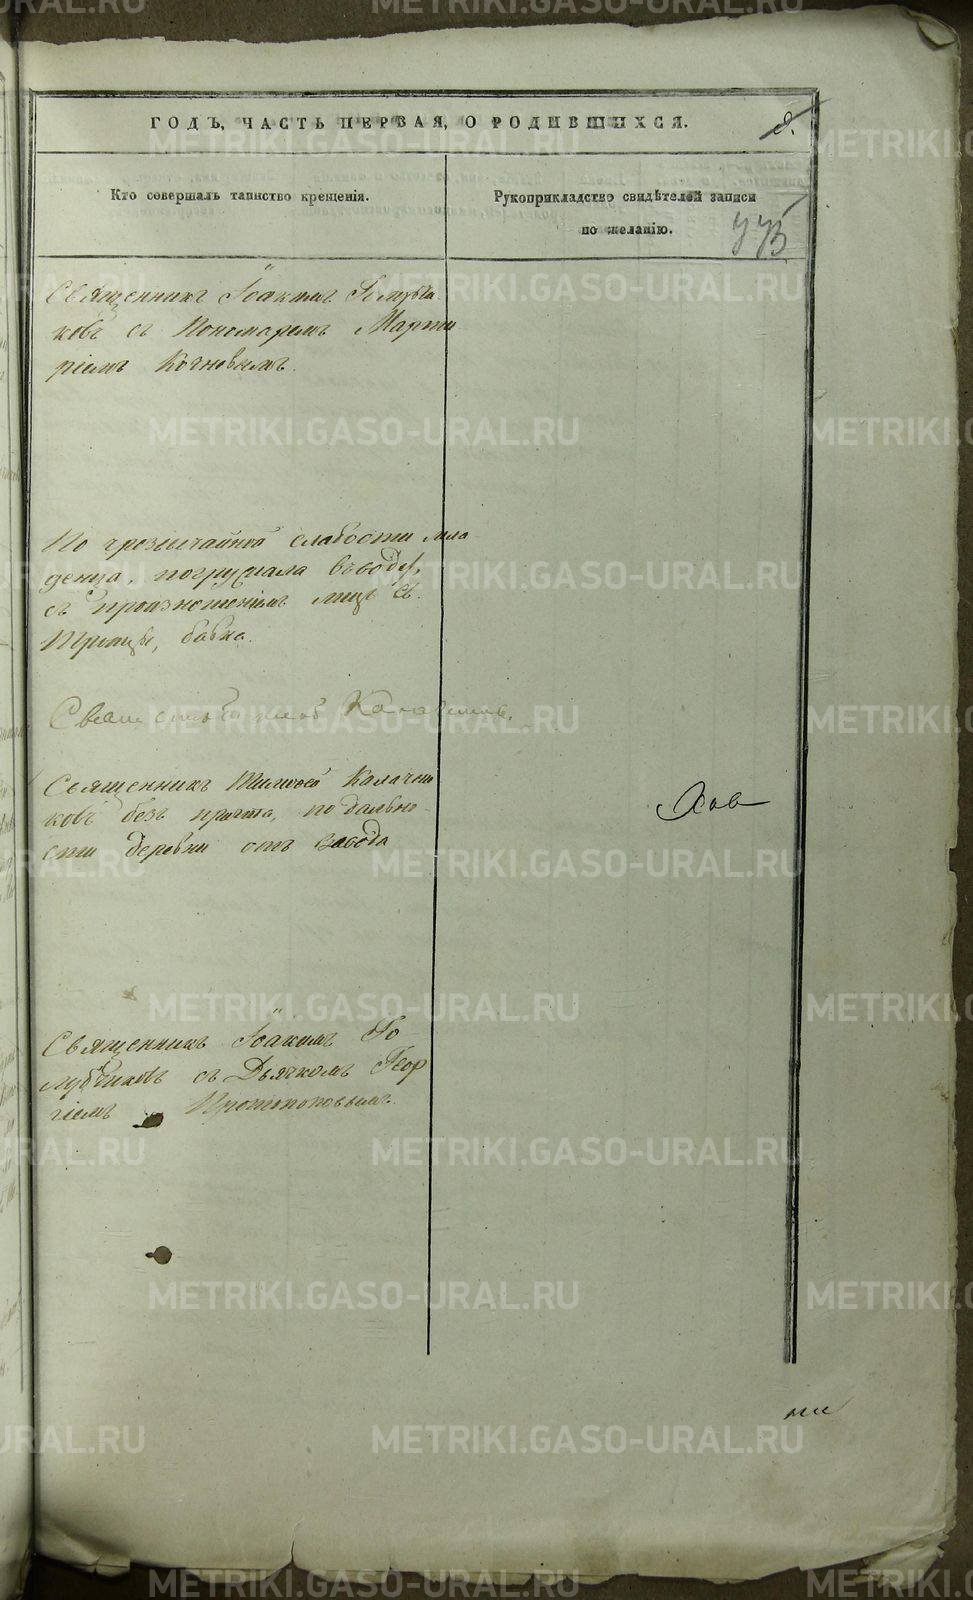 ГОДЪ, ЧАСТЬ ПЕРВАЯ, О РОДИВШИХСЯ.
Кто совершалъ таинство крещенія.
Рукоприкладство свидѣтелей записи
по желанію.
Священникъ Іоакимъ Голубчи
ковъ съ Пономаремъ Марти
ріемъ Кочневымъ.
По чрезвычайной слабости мла
денца, погружала въ воду,
съ произношеніемъ лицъ Св.
Троицы, бабка.
Священникъ Тимофей Калачни
ковъ безъ причта, по дально
сти деревни отъ завода
Священникъ Іоакимъ Го
лубчиковъ съ Дьячкомъ Геор
гіемъ Протопоповымъ.
METRIKI.GASO-URAL.RU